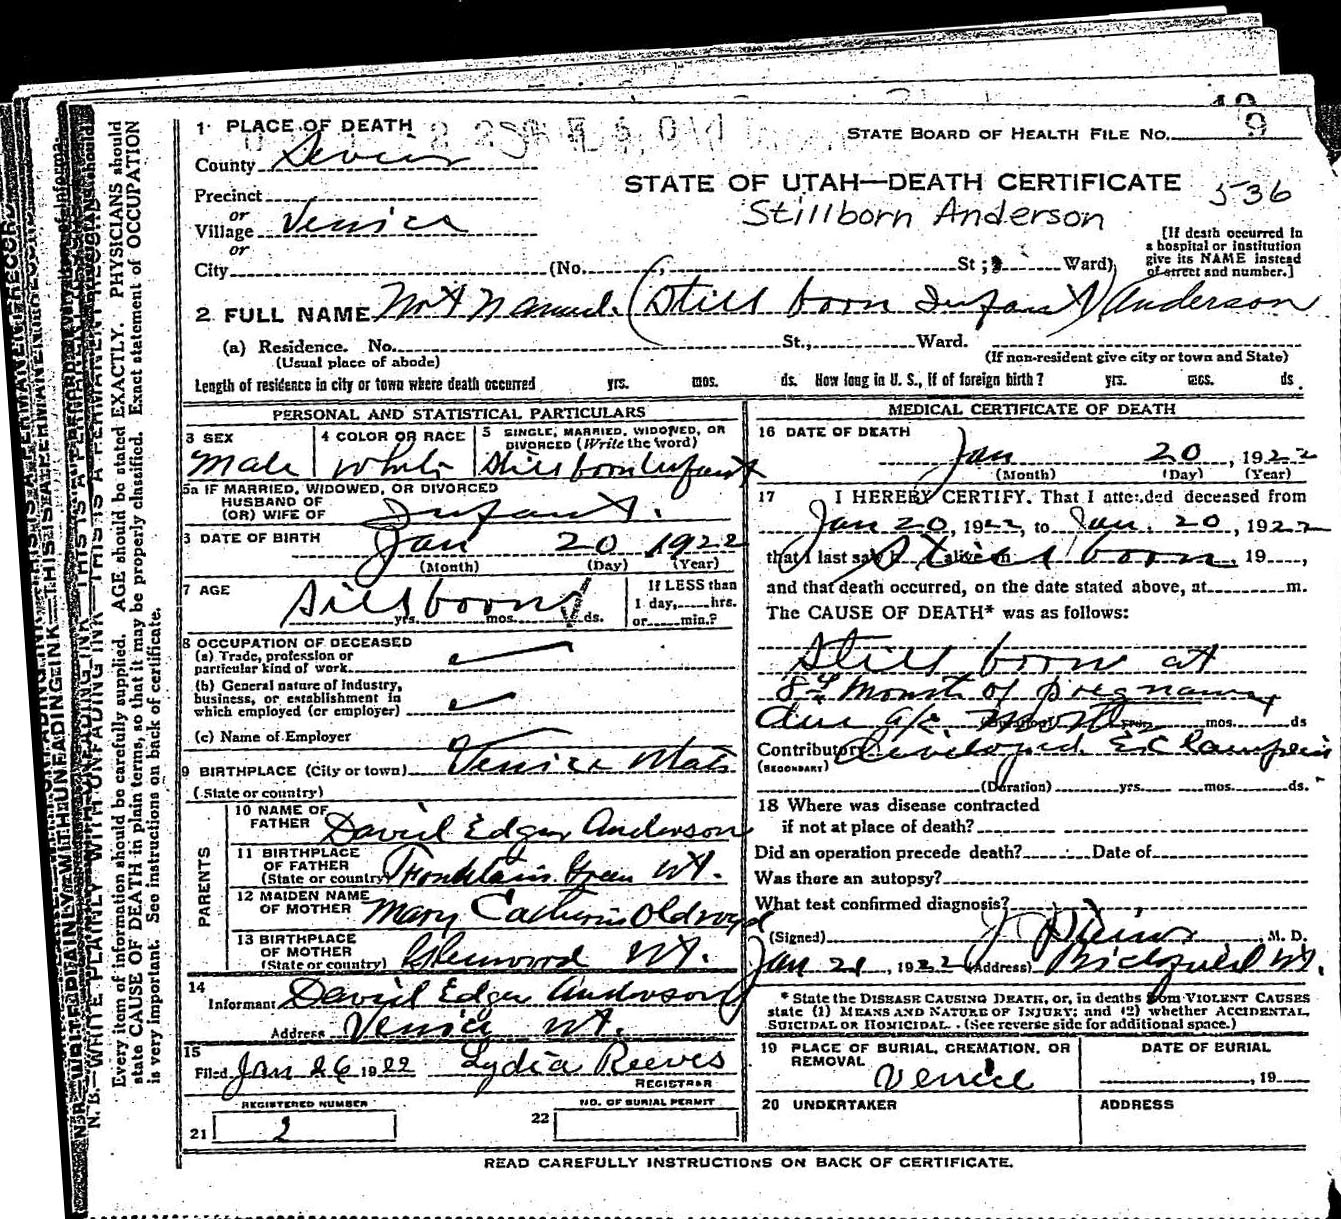 1 PLACE OF DEATH
STATE BOARD OF HEALTH FILE No. 9
County Sevier
STATE OF UTAH—DEATH CERTIFICATE 536
Precinct
Stillborn Anderson
or
Village Venice
or
City (No. St; Ward)
[If death occurred in
a hospital or institution
give its NAME instead
of street and number.]
2 FULL NAME Not Named. (Still born Infant) Anderson
(a) Residence. No. St., Ward.
(Usual place of abode) (If non-resident give city or town and State)
Length of residence in city or town where death occurred yrs. mos. ds. How long in U. S., if of foreign birth? yrs. mos. ds.
PERSONAL AND STATISTICAL PARTICULARS
3 SEX
Male
4 COLOR OR RACE
White
5 SINGLE, MARRIED, WIDOWED, OR
DIVORCED (Write the word)
Still born Infant
5a IF MARRIED, WIDOWED, OR DIVORCED
HUSBAND OF
(OR) WIFE OF Infant.
6 DATE OF BIRTH Jan 20 1922
(Month) (Day) (Year)
7 AGE Still born
yrs. mos. ds.
If LESS than
1 day, hrs.
or min.?
8 OCCUPATION OF DECEASED
(a) Trade, profession or
particular kind of work
(b) General nature of industry,
business, or establishment in
which employed (or employer)
(c) Name of Employer
9 BIRTHPLACE (City or town) Venice
(State or country)
PARENTS
10 NAME OF
FATHER David Edger Anderson
11 BIRTHPLACE
OF FATHER
(State or country) Green Ut.
12 MAIDEN NAME
OF MOTHER Mary Catherin Oldroyd
13 BIRTHPLACE
OF MOTHER
(State or country) Glenwood Ut.
14
Informant David Edger Anderson
Address Venice Ut.
15
Filed Jan 26 1922 Lydia Reeves
REGISTRAR
REGISTERED NUMBER
21 2
NO. OF BURIAL PERMIT
22
MEDICAL CERTIFICATE OF DEATH
16 DATE OF DEATH
Jan 20, 1922
(Month) (Day) (Year)
17 I HEREBY CERTIFY. That I attended deceased from
Jan 20, 1922, to Jan. 20, 1922
that I last saw h alive on Still born, 19
and that death occurred, on the date stated above, at m.
The CAUSE OF DEATH* was as follows:
Still born at
8½ Month of pregnancy
mos. ds
Contributory developed Eclampsia
(SECONDARY)
(Duration) yrs. mos. ds.
18 Where was disease contracted
if not at place of death?
Did an operation precede death? Date of
Was there an autopsy?
What test confirmed diagnosis?
(Signed) M. D.
Jan 21, 1922 (Address) Ut.
* State the DISEASE CAUSING DEATH, or, in deaths from VIOLENT CAUSES
state (1) MEANS AND NATURE OF INJURY; and (2) whether ACCIDENTAL,
SUICIDAL OR HOMICIDAL. (See reverse side for additional space.)
19 PLACE OF BURIAL, CREMATION, OR
REMOVAL
Venice
DATE OF BURIAL
, 19
20 UNDERTAKER
ADDRESS
READ CAREFULLY INSTRUCTIONS ON BACK OF CERTIFICATE.
N. B.—WRITE PLAINLY WITH UNFADING INK—THIS IS A PERMANENT RECORD
Every item of information should be carefully supplied. AGE should be stated EXACTLY. PHYSICIANS should
state CAUSE OF DEATH in plain terms, so that it may be properly classified. Exact statement of OCCUPATION
is very important. See instructions on back of certificate.